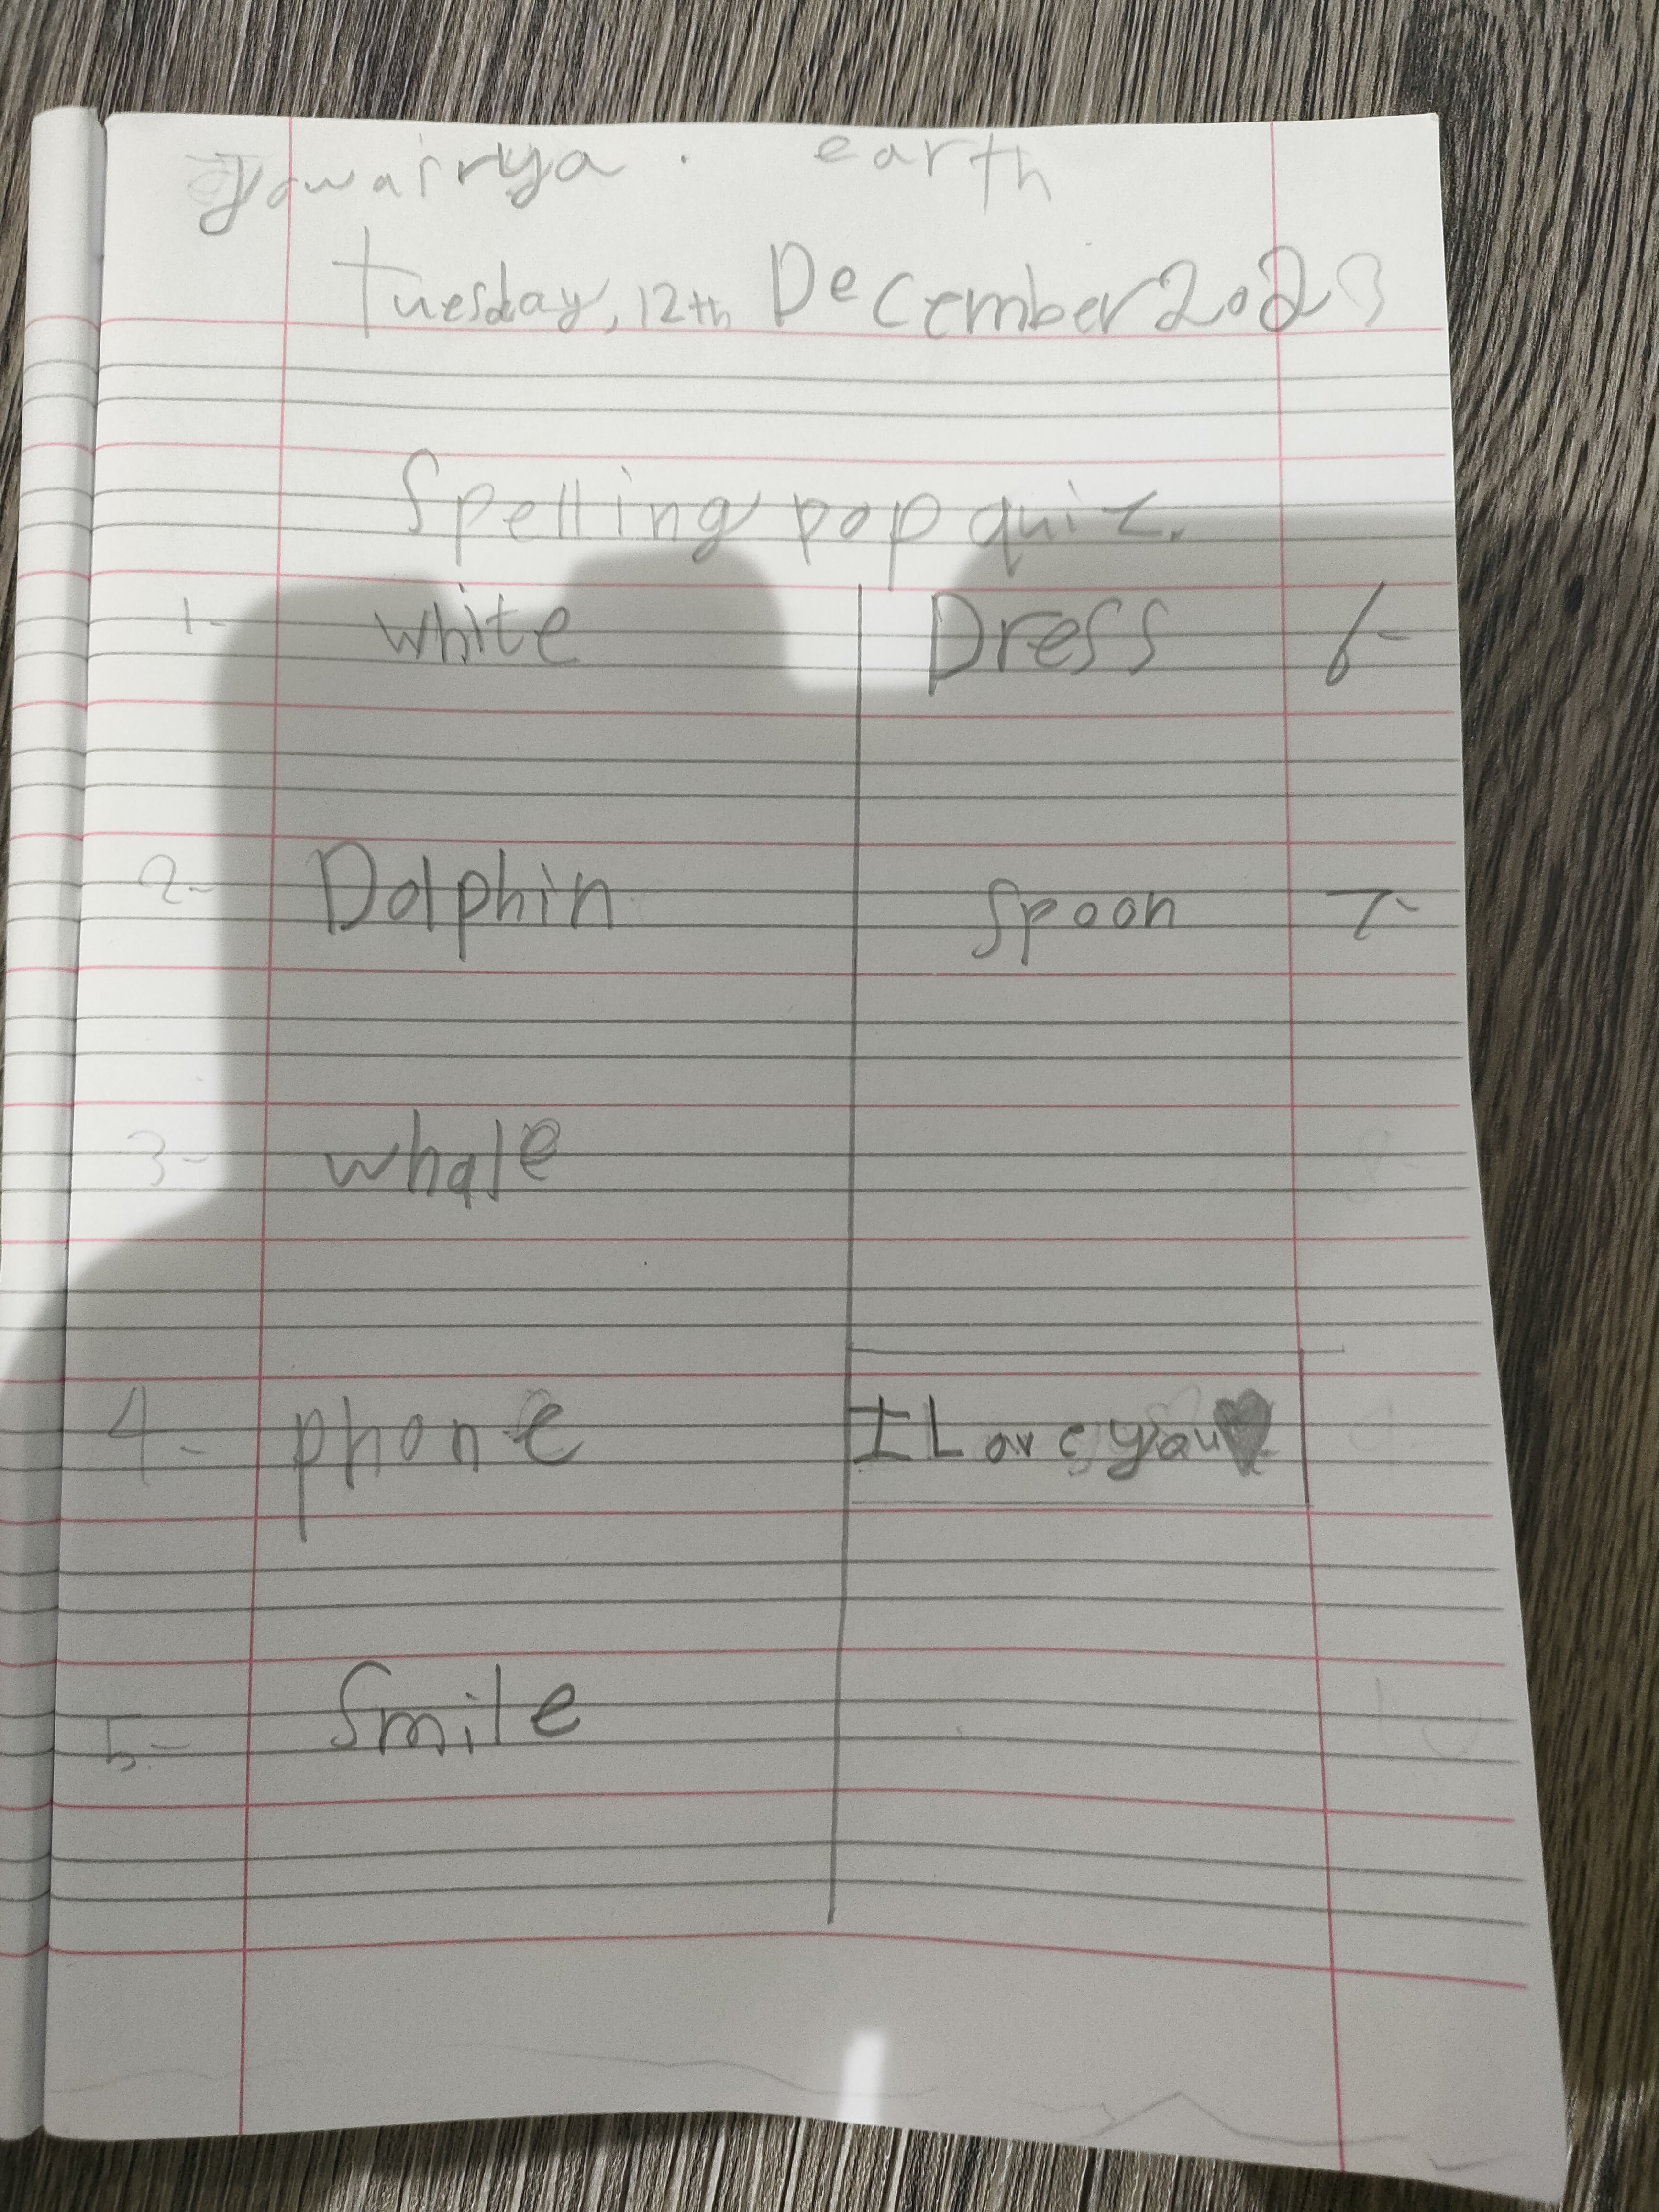 Jowairya. earth
Tuesday, 12th December 2023
Spelling pop quiz.
1- white
Dress 6-
2- Dolphin
Spoon 7-
3- whale
8
4- phone
I Love you♥
5- Smile
10